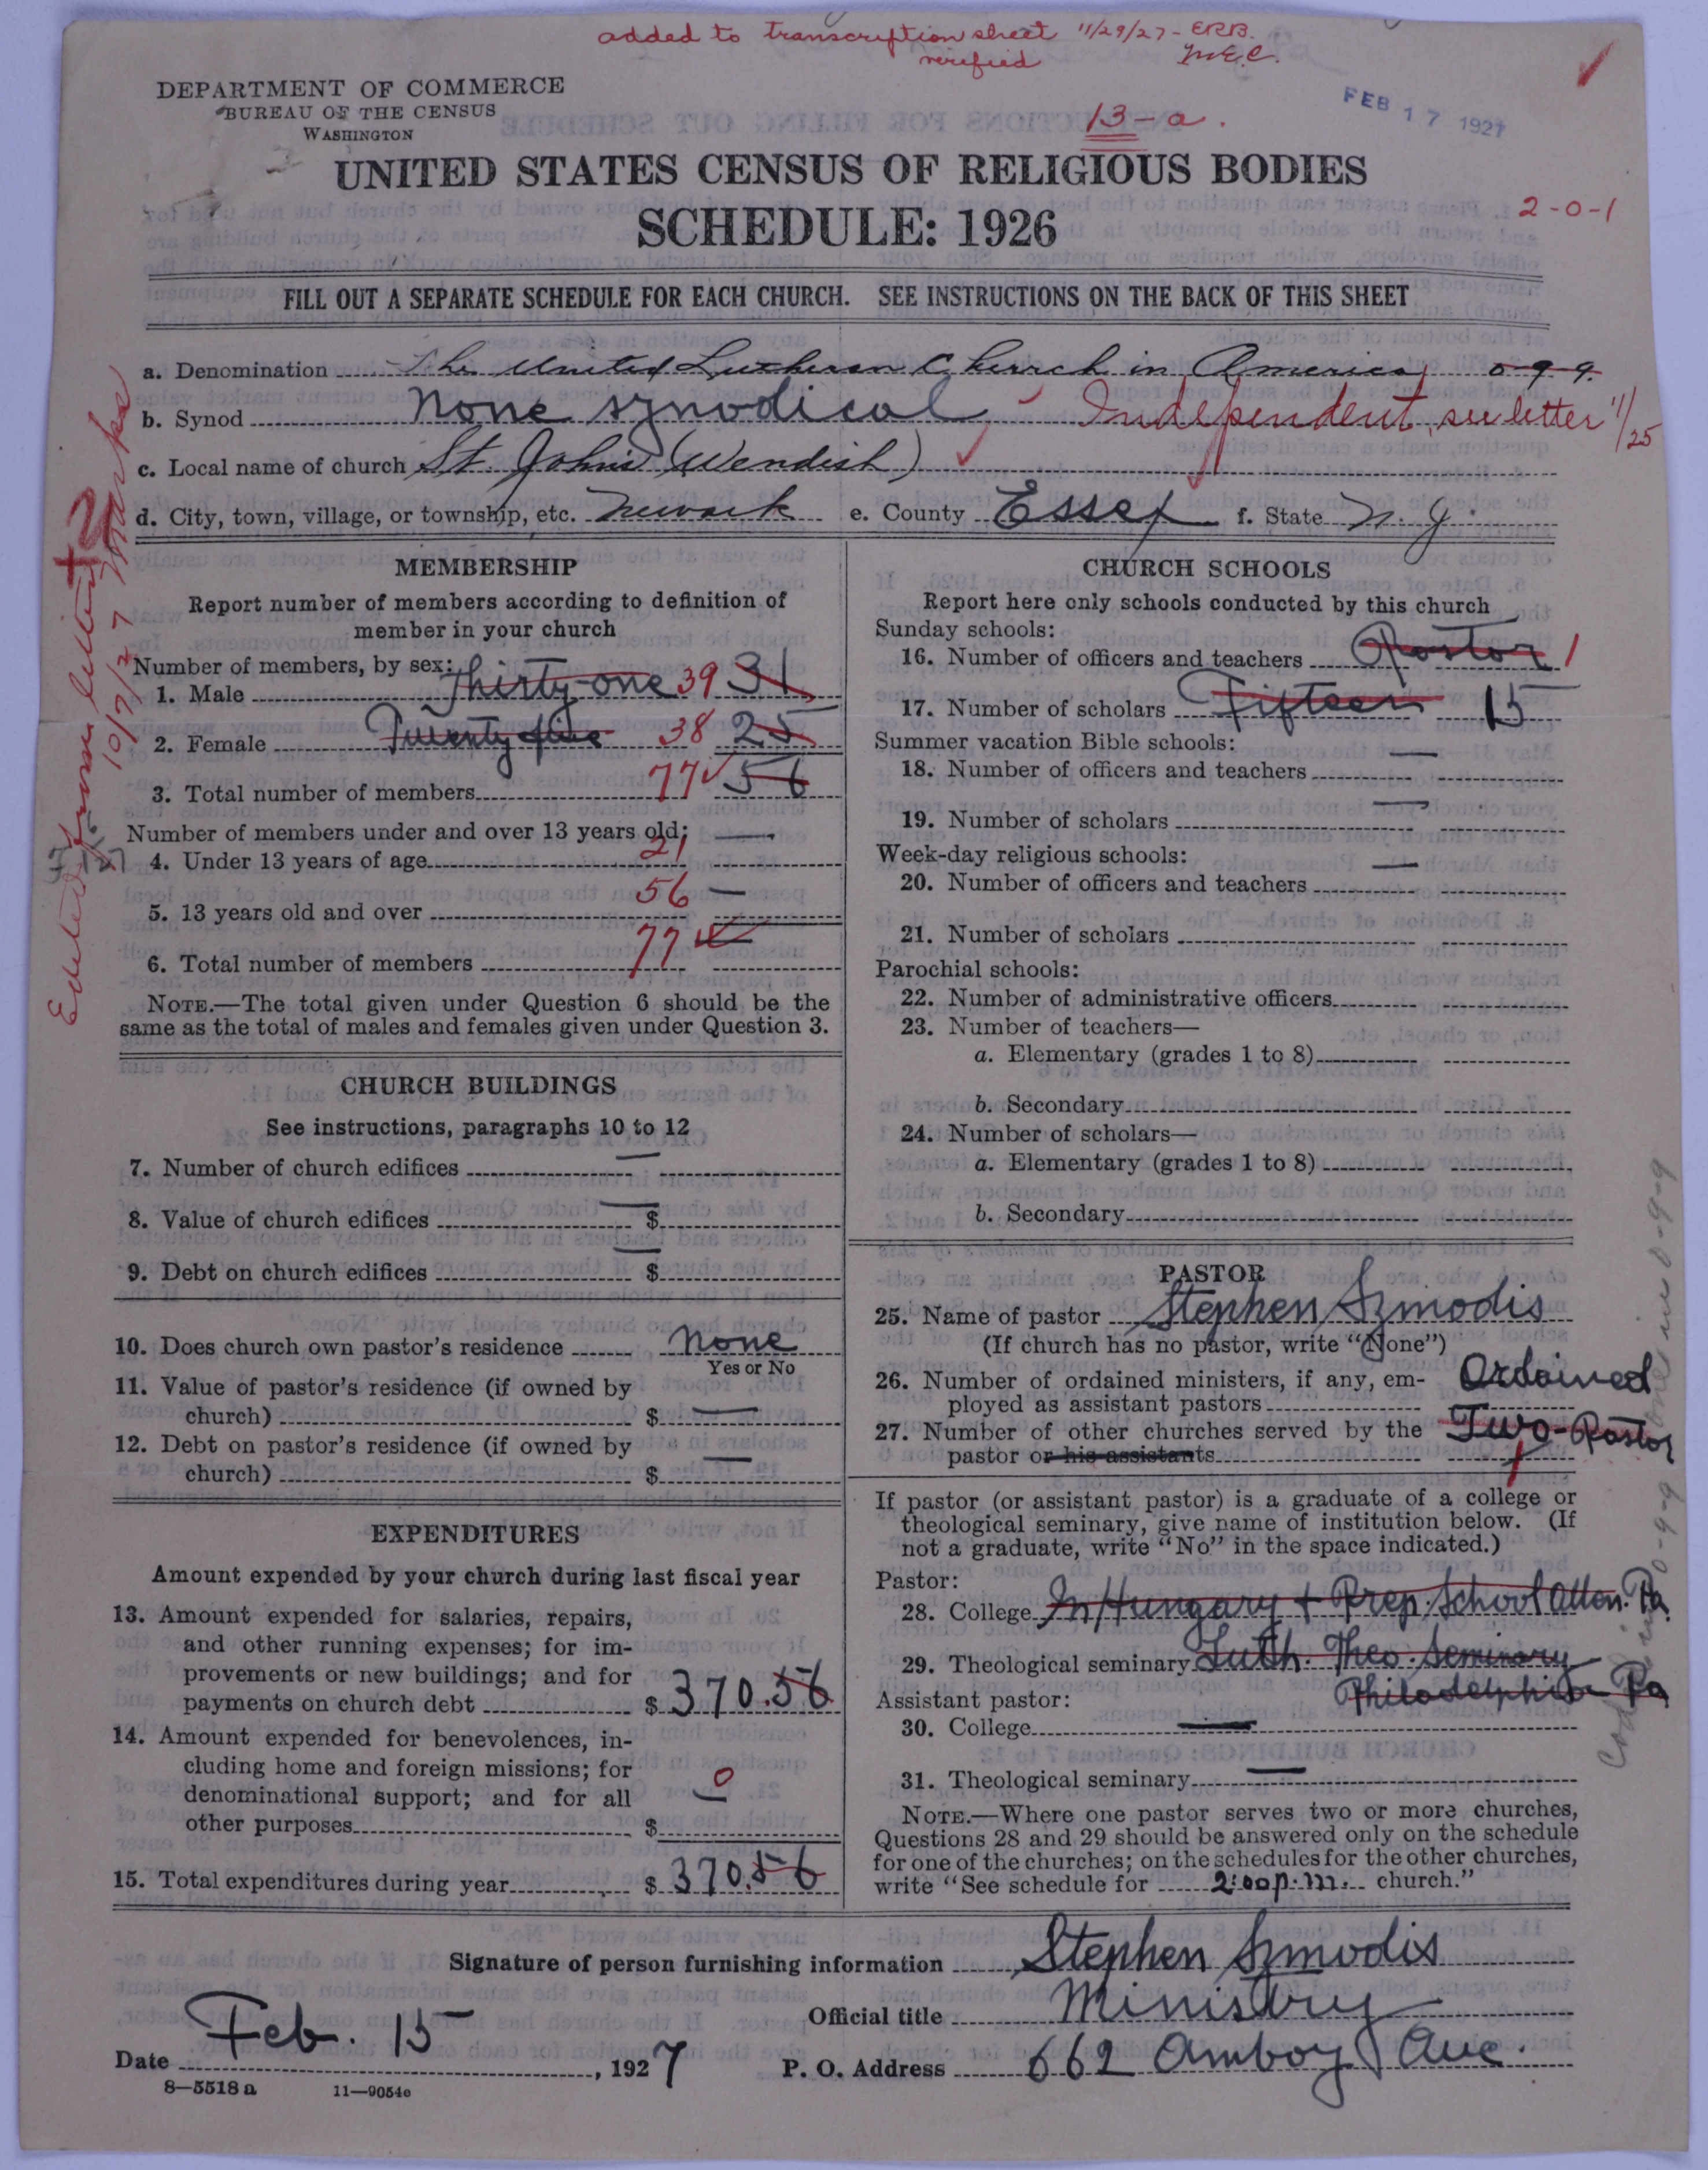 added to transcription sheet 11/29/27 - ERB.
verified M.E.C.
DEPARTMENT OF COMMERCE
BUREAU OF THE CENSUS
WASHINGTON
FEB 17 1927
13-a.
UNITED STATES CENSUS OF RELIGIOUS BODIES
SCHEDULE: 1926
2-0-1
FILL OUT A SEPARATE SCHEDULE FOR EACH CHURCH. SEE INSTRUCTIONS ON THE BACK OF THIS SHEET
a. Denomination The United Lutheran Church in America 0-9-9.
b. Synod None synodical - Independent, see letter 11/25
c. Local name of church St. Johns (Wendish)
d. City, town, village, or township, etc. Newark e. County Essex f. State N. J.
MEMBERSHIP
Report number of members according to definition of
member in your church
Number of members, by sex:
1. Male Thirty-one 39 31
2. Female Twenty five 38 25
3. Total number of members 77 56
Number of members under and over 13 years old:
4. Under 13 years of age 21 —
5. 13 years old and over 56 —
6. Total number of members 77 —
NOTE.—The total given under Question 6 should be the
same as the total of males and females given under Question 3.
CHURCH BUILDINGS
See instructions, paragraphs 10 to 12
7. Number of church edifices —
8. Value of church edifices — $
9. Debt on church edifices — $
10. Does church own pastor's residence none
Yes or No
11. Value of pastor's residence (if owned by
church) $ —
12. Debt on pastor's residence (if owned by
church) $ —
EXPENDITURES
Amount expended by your church during last fiscal year
13. Amount expended for salaries, repairs,
and other running expenses; for im-
provements or new buildings; and for
payments on church debt $ 370.56
14. Amount expended for benevolences, in-
cluding home and foreign missions; for
denominational support; and for all
other purposes $ 0 —
15. Total expenditures during year $ 370.56
CHURCH SCHOOLS
Report here only schools conducted by this church
Sunday schools:
16. Number of officers and teachers Pastor 1
17. Number of scholars Fifteen 15
Summer vacation Bible schools:
18. Number of officers and teachers —
19. Number of scholars —
Week-day religious schools:
20. Number of officers and teachers —
21. Number of scholars
Parochial schools:
22. Number of administrative officers
23. Number of teachers—
a. Elementary (grades 1 to 8)
b. Secondary
24. Number of scholars—
a. Elementary (grades 1 to 8)
b. Secondary
PASTOR
25. Name of pastor Stephen Szmodis
(If church has no pastor, write "None")
26. Number of ordained ministers, if any, em-
ployed as assistant pastors Ordained
27. Number of other churches served by the
pastor or his assistants Two - Pastor
If pastor (or assistant pastor) is a graduate of a college or
theological seminary, give name of institution below. (If
not a graduate, write "No" in the space indicated.)
Pastor:
28. College In Hungary + Prep. School Allen. Pa.
29. Theological seminary Luth. Theo. Seminary
Philadelphia Pa
Assistant pastor:
30. College —
31. Theological seminary —
NOTE.—Where one pastor serves two or more churches,
Questions 28 and 29 should be answered only on the schedule
for one of the churches; on the schedules for the other churches,
write "See schedule for 2:00 p.m. church."
Signature of person furnishing information Stephen Szmodis
Official title Ministry
Date Feb. 15, 1927 P. O. Address 662 Amboy Ave.
8—5518 a 11—9054e
Edited from letter 10/7/27